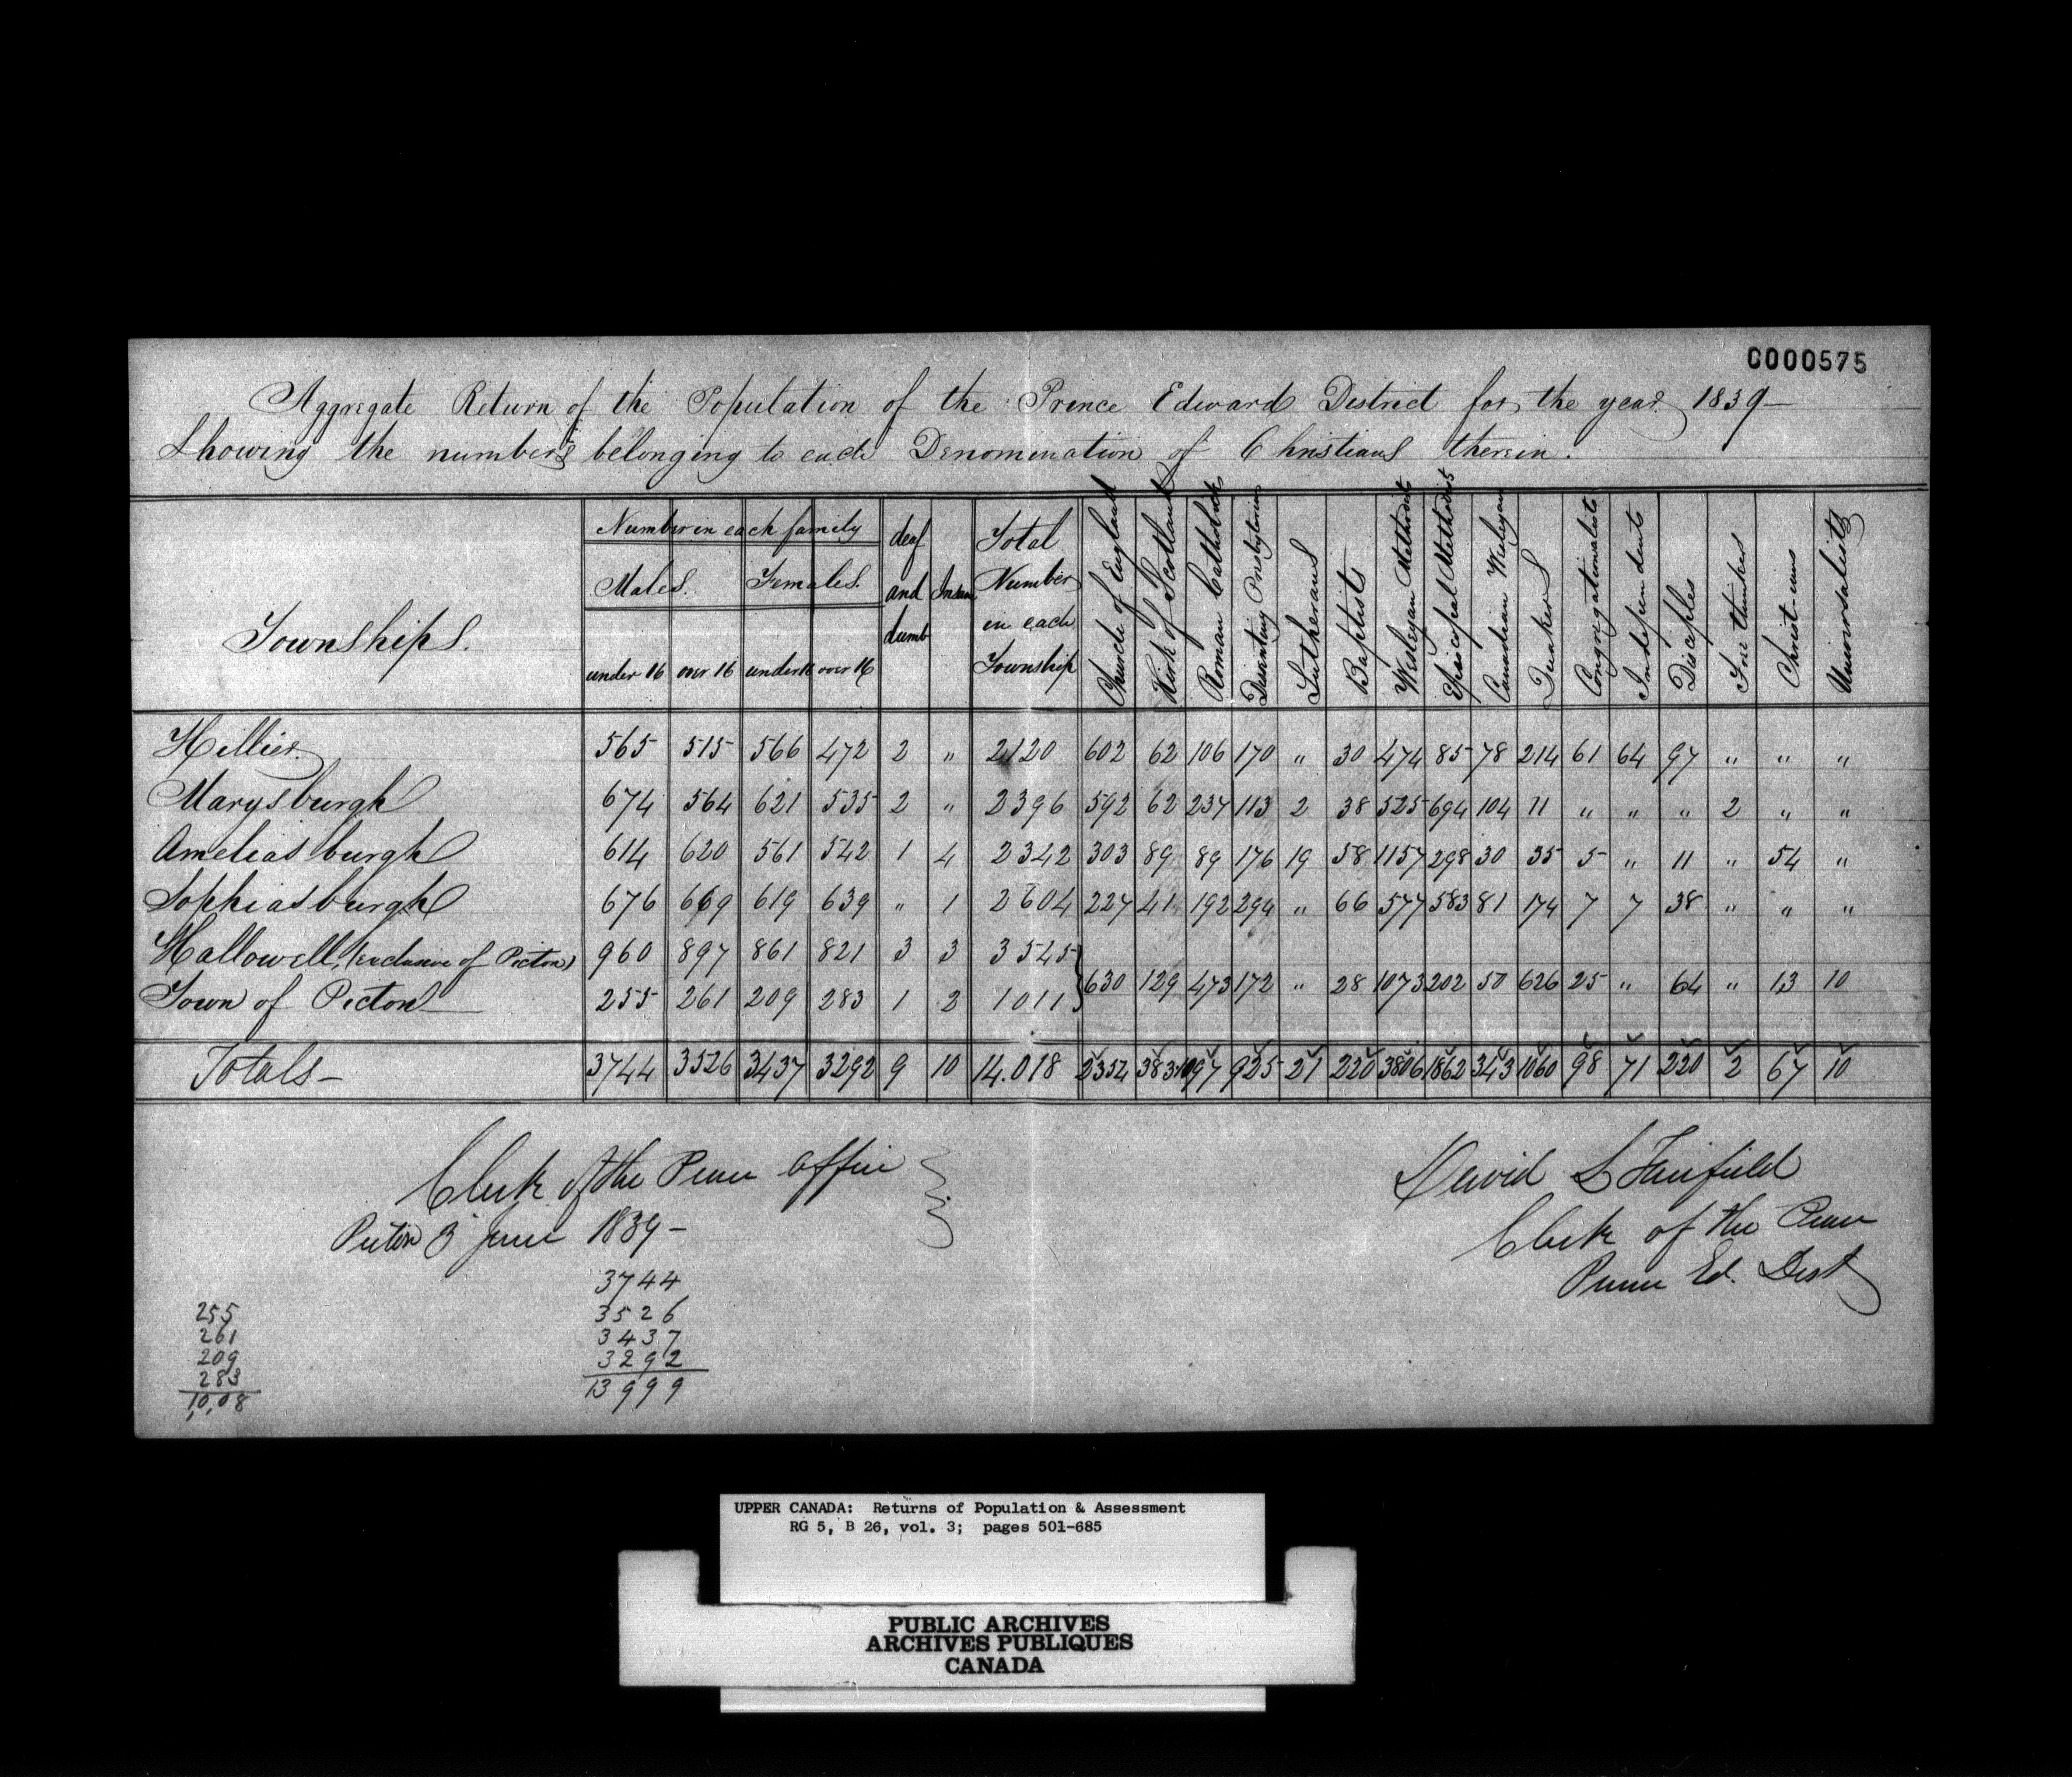 C000575
Aggregate Return of the Population of the Prince Edward District for the year 1839 –
Showing the numbers belonging to each Denomination of Christians therein.
Townships. | Number in each family | Males. under 16 | over 16 | Females. under 16 | over 16 | deaf and dumb | Insane | Total Number in each Township | Church of England | Kirk of Scotland | Roman Catholicks | Dissenting Presbyterians | Lutherans | Baptists | Wesleyan Methodists | Episcopal Methodists | Canadian Wesleyan | Quakers | Congregationalists | Independents | Disciples | Free thinkers | Christ-ians | Universalists
Hillier | 565 | 515 | 566 | 472 | 2 | " | 2120 | 602 | 62 | 106 | 170 | " | 30 | 474 | 85 | 78 | 214 | 61 | 64 | 97 | " | " | "
Marysburgh | 674 | 564 | 621 | 535 | 2 | " | 2396 | 592 | 62 | 237 | 113 | 2 | 38 | 525 | 694 | 104 | 11 | " | " | " | 2 | " | "
Ameliasburgh | 614 | 620 | 561 | 542 | 1 | 4 | 2342 | 303 | 89 | 89 | 176 | 19 | 58 | 1157 | 298 | 30 | 35 | 5 | " | 11 | " | 54 | "
Sophiasburgh | 676 | 669 | 619 | 639 | " | 1 | 2604 | 227 | 41 | 192 | 294 | " | 66 | 577 | 583 | 81 | 174 | 7 | 7 | 38 | " | " | "
Hallowell, (exclusive of Picton) | 960 | 897 | 861 | 821 | 3 | 3 | 3545
Town of Picton — | 255 | 261 | 209 | 283 | 1 | 2 | 1011 } 630 | 129 | 473 | 172 | " | 28 | 1073 | 202 | 50 | 626 | 25 | " | 64 | " | 13 | 10
Totals – | 3744 | 3526 | 3437 | 3292 | 9 | 10 | 14.018 | 2354 | 383 | 1097 | 925 | 21 | 220 | 3806 | 1862 | 343 | 1060 | 98 | 71 | 220 | 2 | 67 | 10
Clerk of the Peace Office
Picton 3 June 1839 –
David L Fairfield
Clerk of the Peace
Prince Ed. Dist
3744
3526
3437
3292
13999
255
261
209
283
10,08
UPPER CANADA: Returns of Population & Assessment
RG 5, B 26, vol. 3; pages 501-685
PUBLIC ARCHIVES
ARCHIVES PUBLIQUES
CANADA